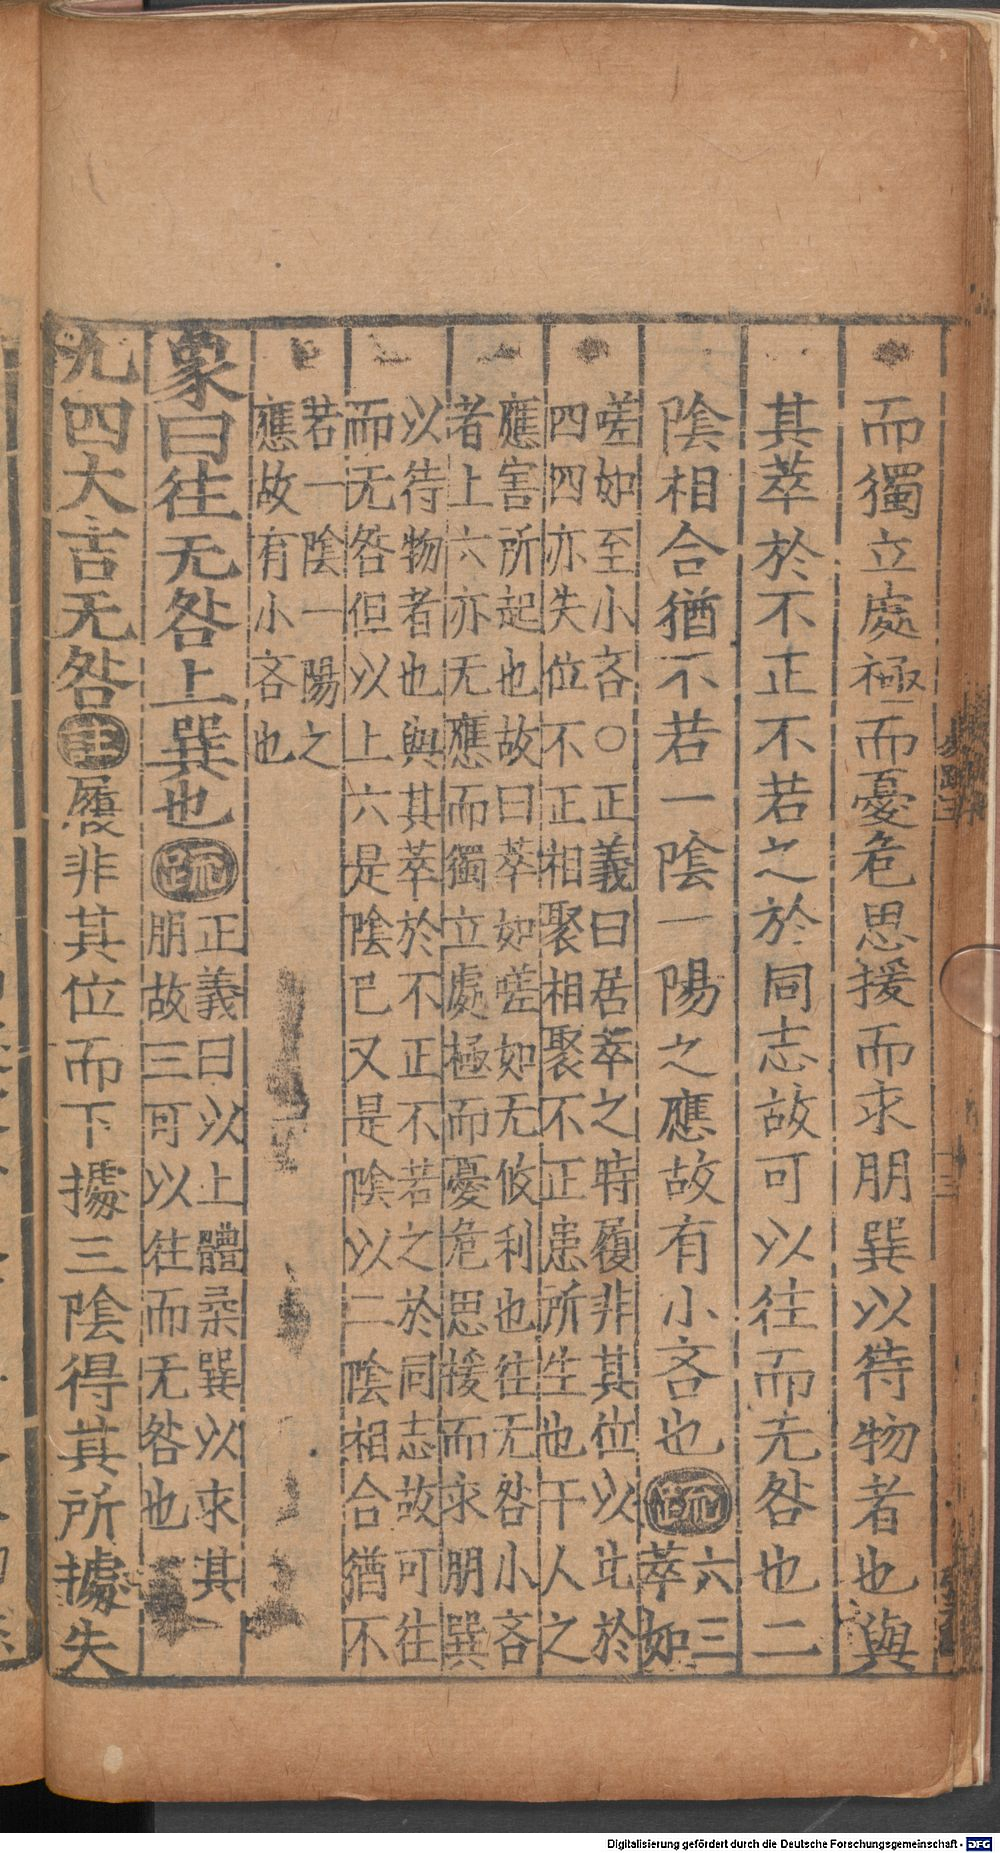 而獨立處極而憂危思援而求朋巽以待物者也與
其萃於不正不若之於同志故可以往而无咎也二
陰相合猶不若一陰一陽之應故有小吝也疏六三
萃如
嗟如至小吝○正義曰居萃之時履非其位以比於
四四亦失位不正相聚相聚不正患所生也干人之
應害所起也故曰萃如嗟如无攸利也往无咎小吝
者上六亦无應而獨立處極而憂危思援而求朋巽
以待物者也與其萃於不正不若之於同志故可往
而无咎但以上六是陰巳又是陰以二陰相合猶不
若一陰一陽之
應故有小吝也
象曰往无咎上巽也疏正義曰以上體柔巽以求其
朋故三可以往而无咎也
九四大吉无咎注履非其位而下據三陰得其所據失
Digitalisierung gefördert durch die Deutsche Forschungsgemeinschaft - DFG